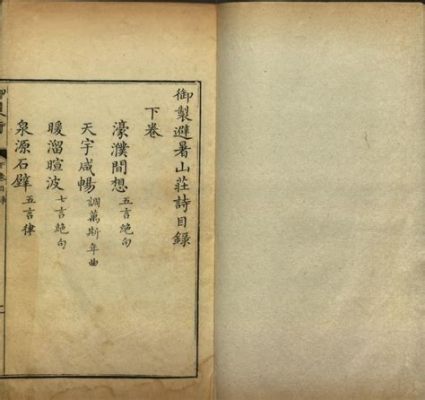 御製避暑山莊詩目錄
下卷
濠濮間想 五言絶句
天宇咸暢 調萬斯年曲
暖溜暄波 七言絶句
泉源石壁 五言律